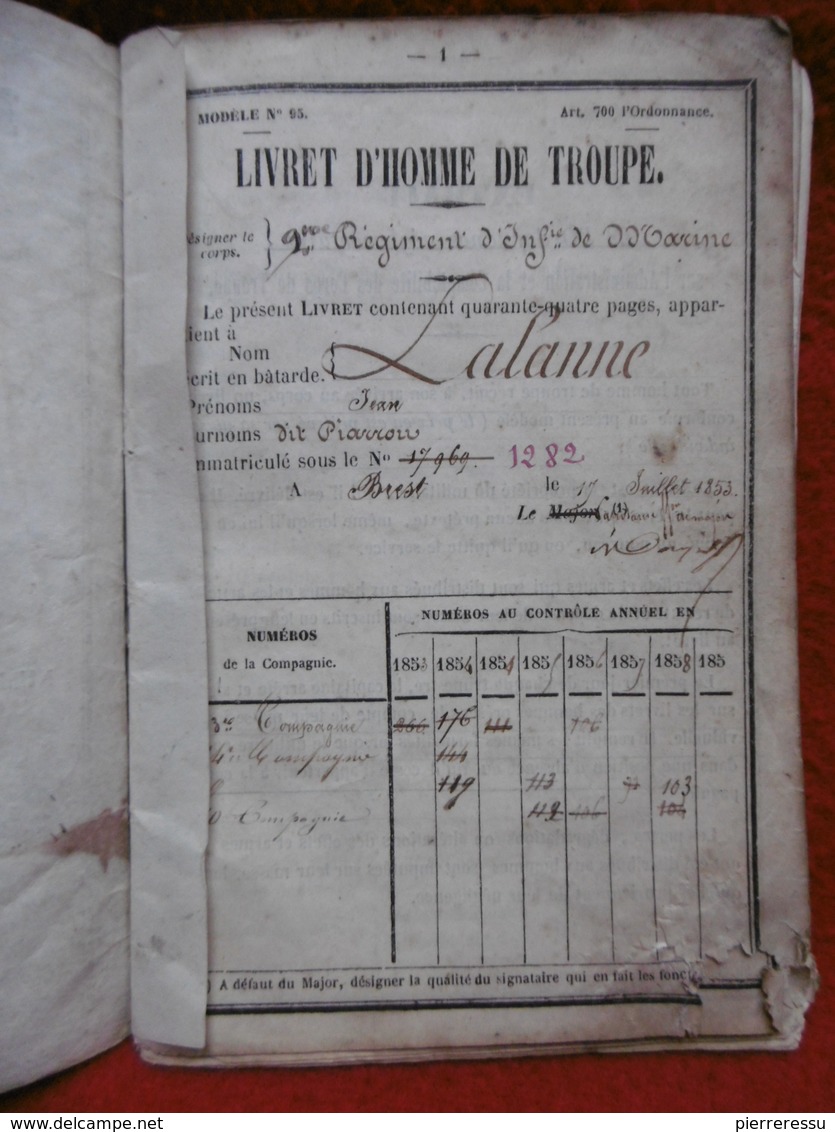 — 1 —
MODÈLE No 95. Art. 700 l'Ordonnance.
LIVRET D'HOMME DE TROUPE.
ésigner le
corps. } 2me Régiment d'Infie de Marine
Le présent LIVRET contenant quarante-quatre pages, appar-
ient à
Nom
crit en bâtarde. { Lalanne
Prénoms Jean
urnoms dit Piarrou
nmatriculé sous le No 17969. 1282
A Brest le 17 Juillet 1853.
Le Major (1)
NUMÉROS
de la Compagnie.
NUMÉROS AU CONTRÔLE ANNUEL EN
1853 1854 1854 1855 1856 1857 1858 185
3me Compagnie 266 176 111 106
4me Compagnie 144
119 113 103
0 Compagnie 112 106 104
) A défaut du Major, désigner la qualité du signataire qui en fait les fonct
www.delcampe.net
pierreressu